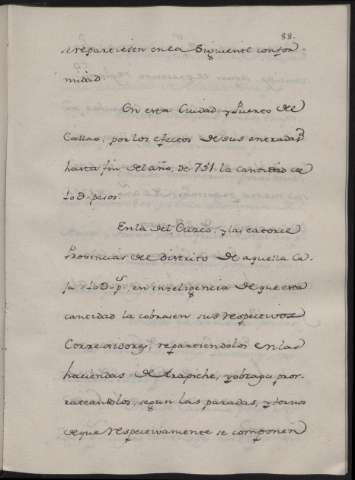 88.
se repartiesen en la siguiente confor-
midad
En esta Ciudad y Puerto del
Callao, por los efectos de sus entradas
hasta fin del año, de 751. la cantidad de
pesos.
En la del Cuzco, y las catorce
Provincias del distrito de aquella Ca-
ja en inteligencia de que esta
cantidad la cobrasen sus respectivos
Corregidores, repartiendolos en las
haciendas de trapiche, y obrages pror-
rateandolos, segun las paradas, y tornos
de que respectivamente se componen